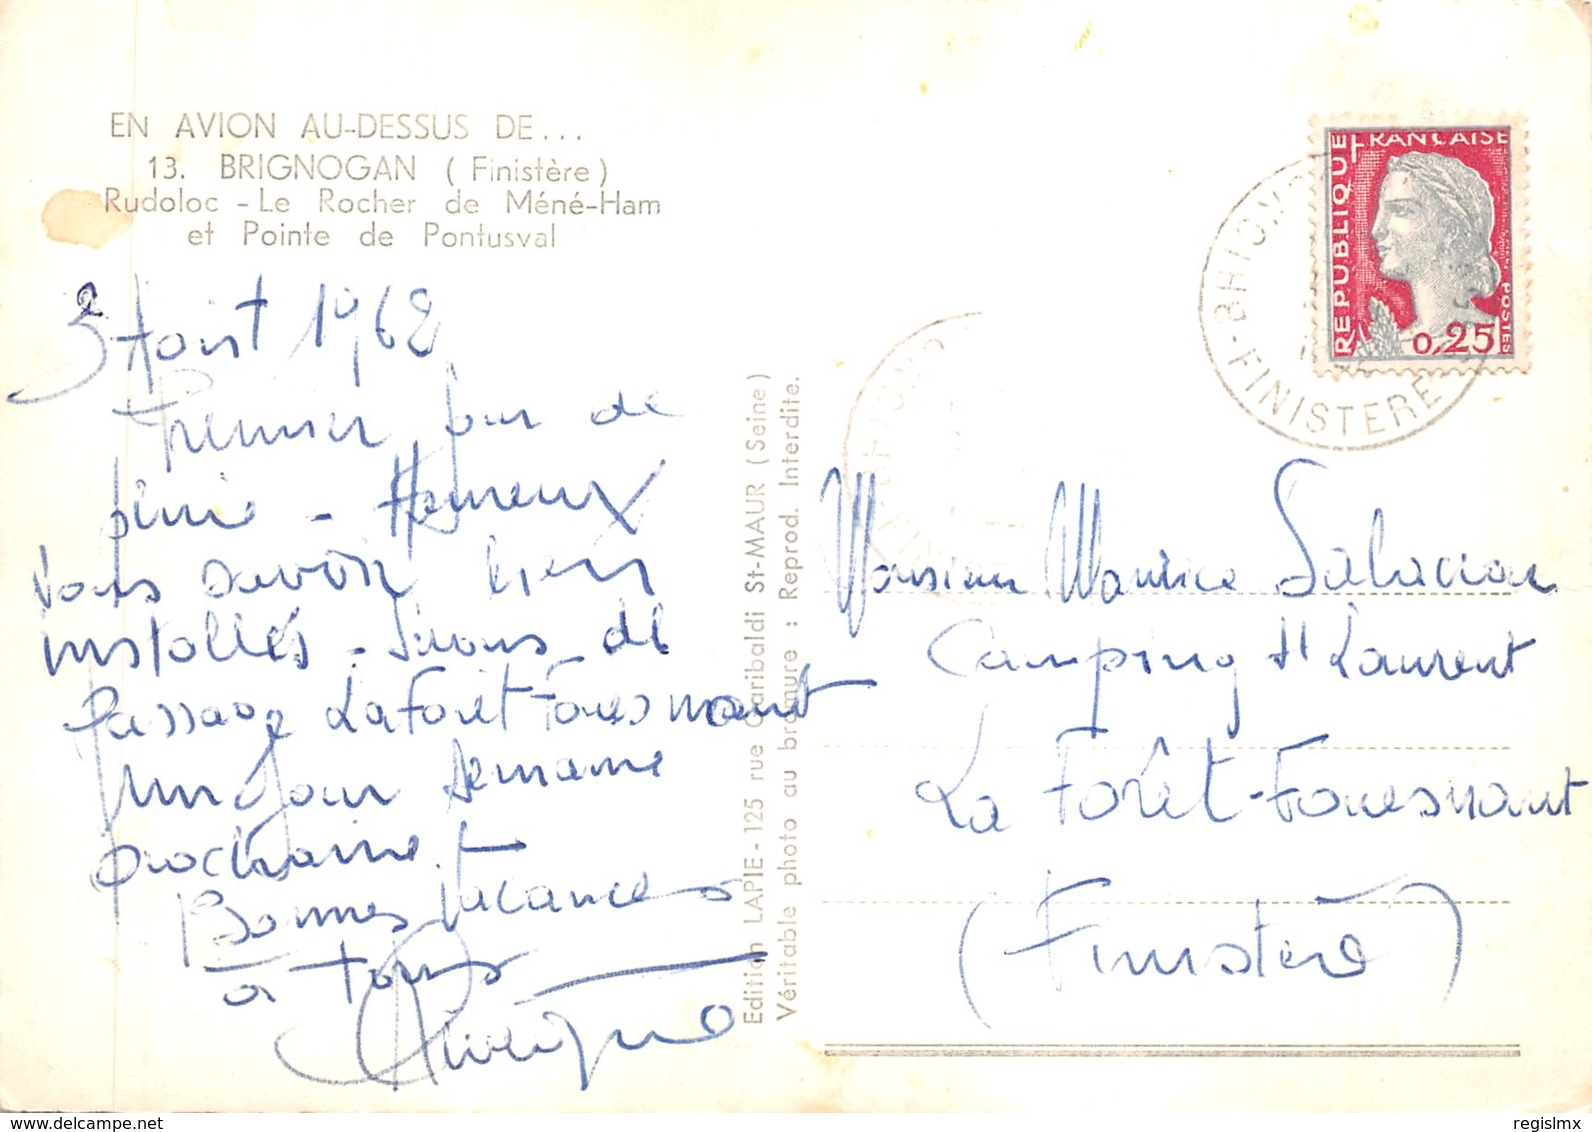 EN AVION AU-DESSUS DE...
13. BRIGNOGAN (Finistère)
Rudoloc - Le Rocher de Méné-Ham
et Pointe de Pontusval
3 Août 1962
Premier jour de
pluie - Heureux
vous savoir bien
installés - Serons de
passage La Forêt-Fouesnant
un jour semaine
prochaine.
Bonnes vacances
à tous
Edition LAPIE - 125 rue Garibaldi St-MAUR (Seine)
Véritable photo au bromure : Reprod. Interdite.
REPUBLIQUE FRANÇAISE
POSTES
0,25
BRIGNO
FINISTERE
Monsieur Maurice
Camping St Laurent
La Forêt-Fouesnant
(Finistère)
delcampe.net
regislmx